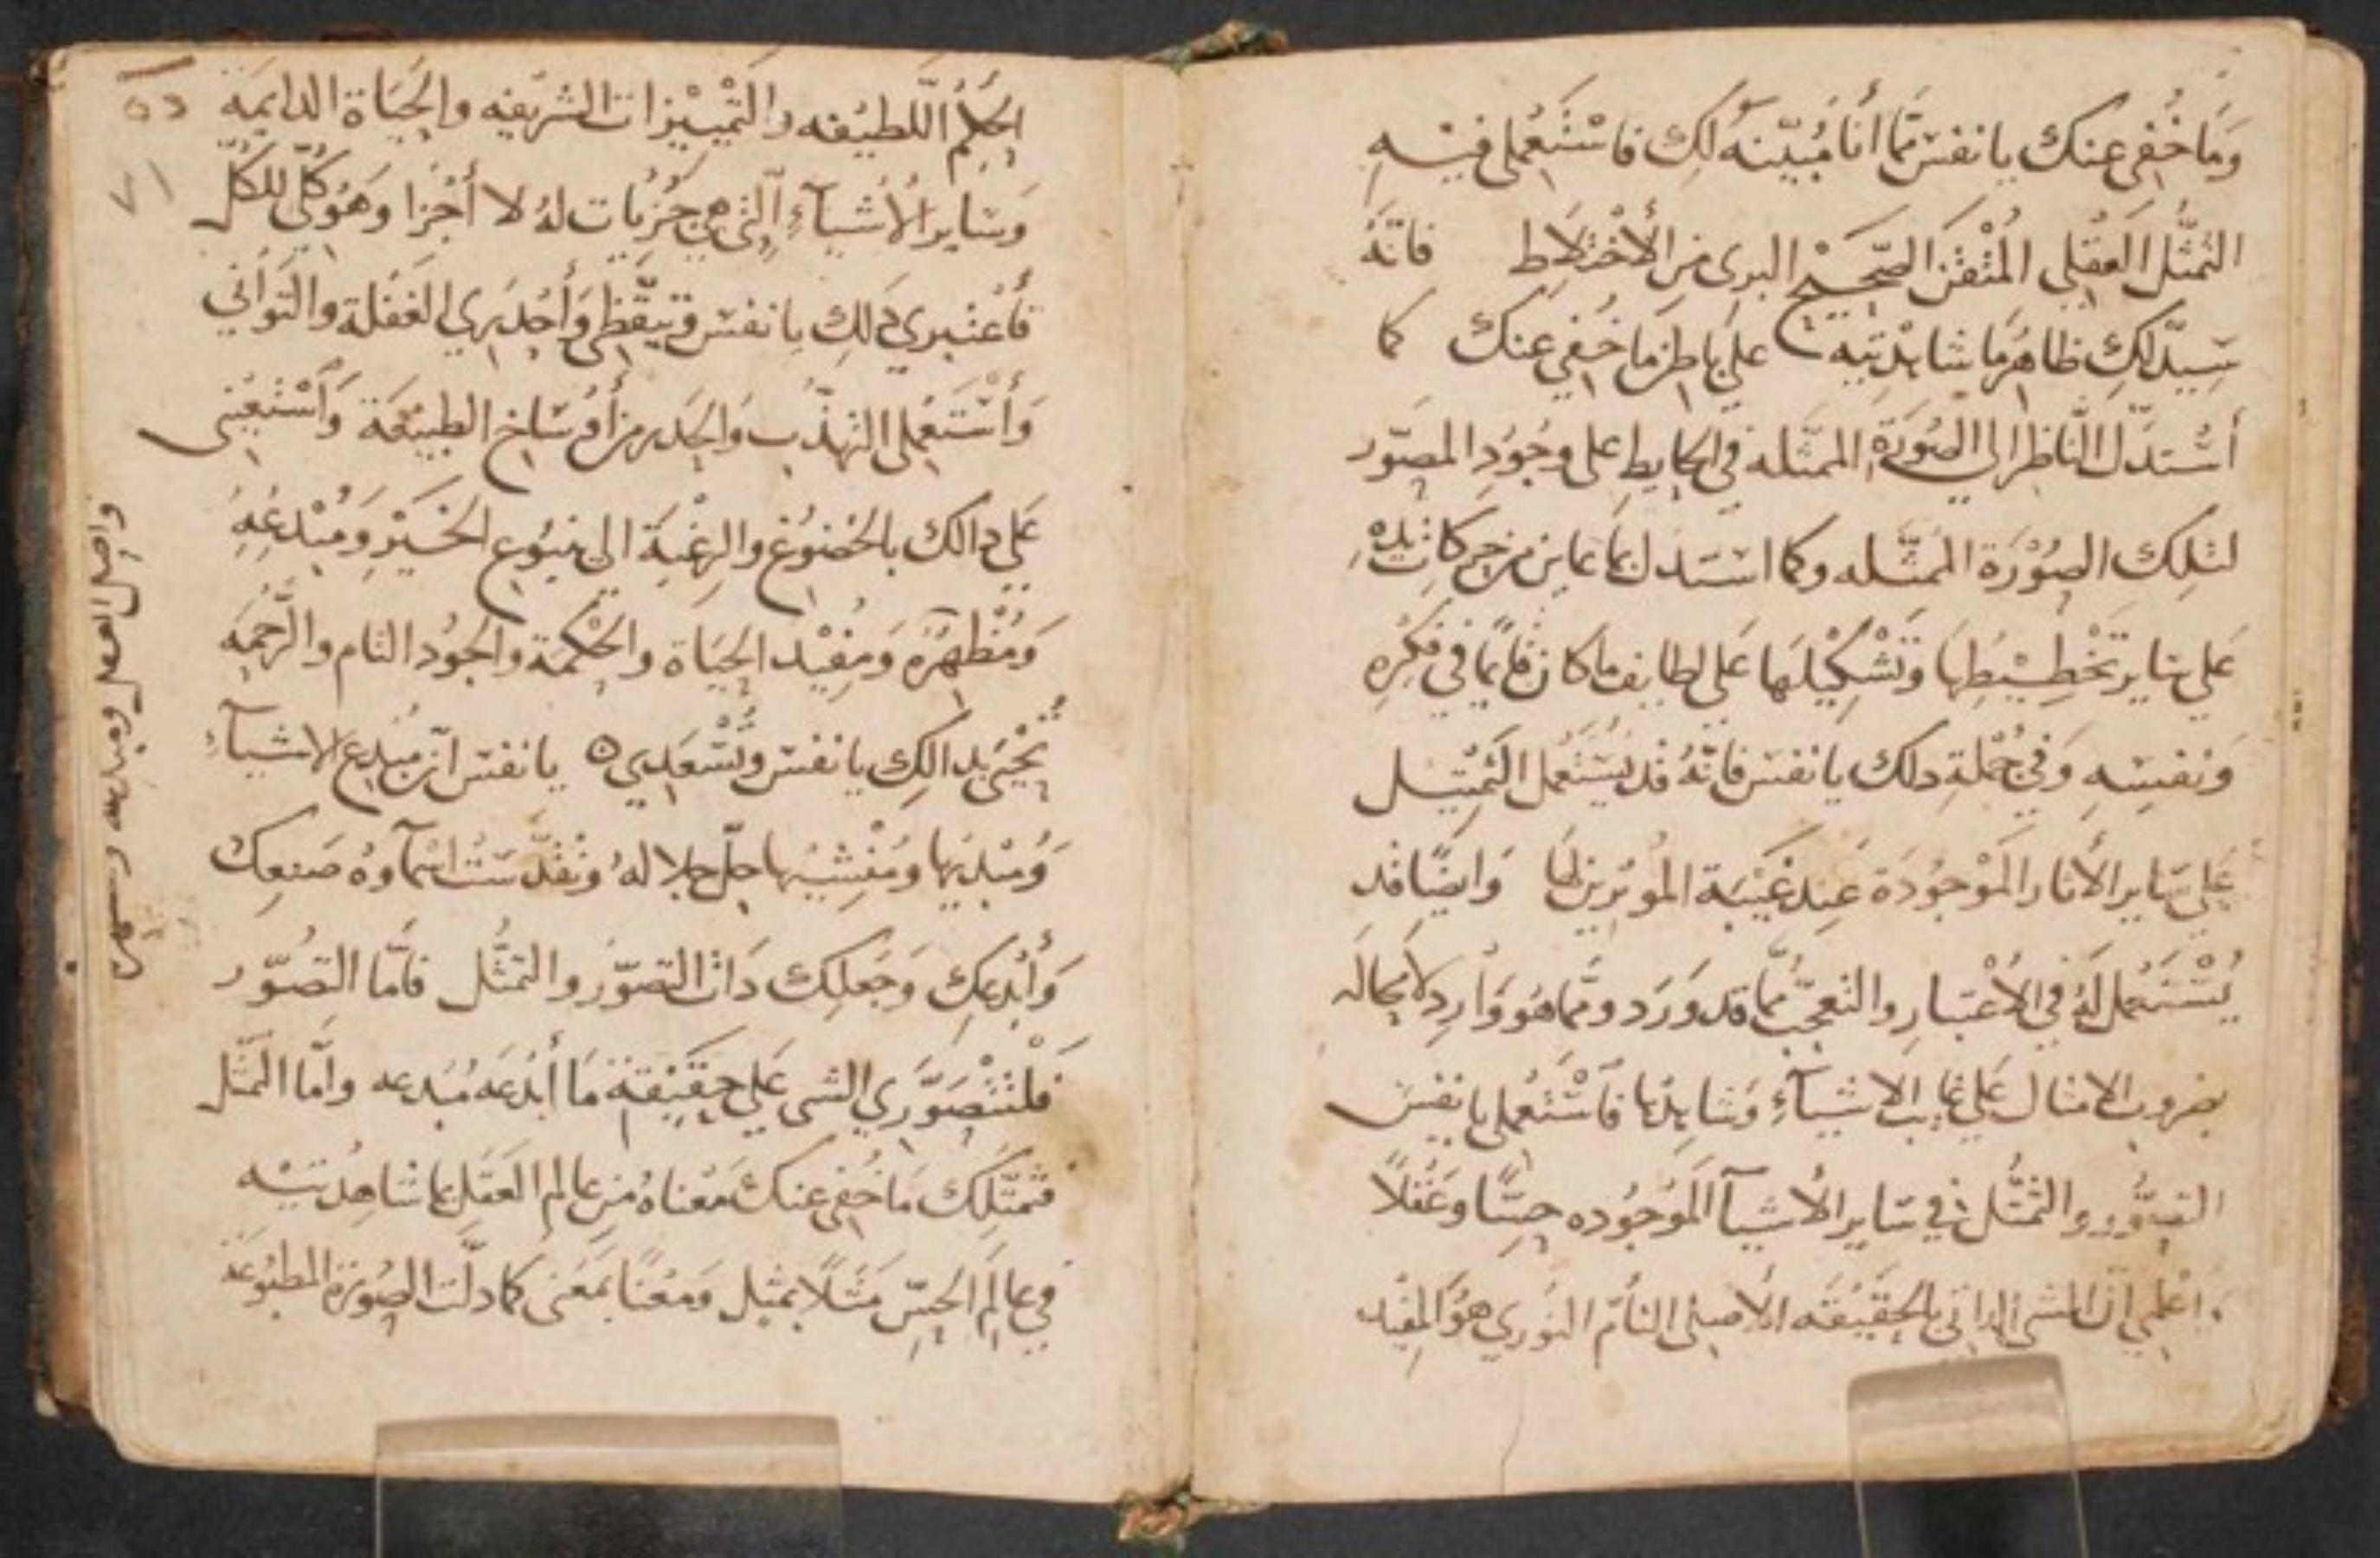 وَمَا خُفى عنك يا نفس ممّا أنا مُبيّنهُ لَكِ فاسْتَعْملى فيْهِ
التمثُّل العَقْلي المُتْقَن الصّحَيْح البرى مِن الأخْتِلاَط فانّهُ
سَيدّلكِ ظاهرَ ما شاهدْتيه علي باطِن ما خُفي عنك كما
أسْتدّل النّاظر الى الصُوْرَةِ الممثّله في الحايطِ على وجُودِ المصَوّر
لتلِكَ الصُوْرَة المُمثّله وكما استدل بما عاين من حركات يدهِ
عَلي ساير تَخْطِيْطِهَا وَتَشْكِيْلهَا عَلي لطايف ما كان قايمًا في فكرِهِ
وَنفسِهِ وَفي جُمْلةِ دلك يا نفس فانّهُ قد يُسْتَعمل التمثيل
عَليَ سَاير الأثار المَوْجُودَة عِند غَيْبَة المُوثرين لهَا وَايضًا قد
يُسْتَعْمل لَهُ في الأعْتبار والتعجّب ممّا قد وَرَد وممّا هوَ وَارِد لامحالَه
بضروب الامثال عَلي غايب الاشيآءِ وَشاهدهَا فَاسْتعملى يا نفس
التصوُّر والتمثُّل في سَاير الأشيآ المَوْجُوده حِسًّا وعَقْلاً
واعلمي انّ الشى الداتى بالحِقَيْقَه الأصلى التامّ النوري هوَ المفيد
الحِكَمُ اللّطيْفه والتَمْيِيْزات الشريْفه والحَيَاة الدايمَة
وَسَايرُ الأشيآءِ الّتى هي جُزيات لهُ لا أجْزا وهَوُ كُلّيُ للكُلّ
فأعْتبري دلك يا نفس وَتيقَّظي وَأحْدَري الغَفْلة والتَوَاني
وَأسْتَعْملى التهذّب وَالحَدر من أوْسَاخ الطبيْعَة وَاسْتَعيْنى
عَلي دالك بالخضوْع والرغْبَة الى ينبُوع الخَيْر وَمُبْدعِهِ
وَمُظْهِرُهُ وَمُفِيْد الحَيَاة والحْكمة والجُود التام والرَّحْمَه
تُحْيَي بدالكِ يا نفس وتُسْعَدي ٥ يا نفس انّ مُبْدع الاشيآءِ
وَمُبْديَها ومُنْشِيْها جلّ جلالهُ وتقدَّسَتْ اسْمآوهُ صَنعكِ
وَأبْدعكِ وَجَعلكِ دَات التصوّر والتمثُّل فأمّا التصَوّر
فلتتْصَوَّري الشى عَلي حقَيْقة مَا أبْدَعهُ مُبدعه وأمّا التمثّل
فتمثّلكِ مَا خُفى عنكَ مَعْناهُ مِن عالم العَقل بما شاهدْتيْه
في عالَم الحِسّ مَثَلاً بمثِل وَمَعْنًا بمَعْنى كما دلّت الصُوْرَة المطبوعَة